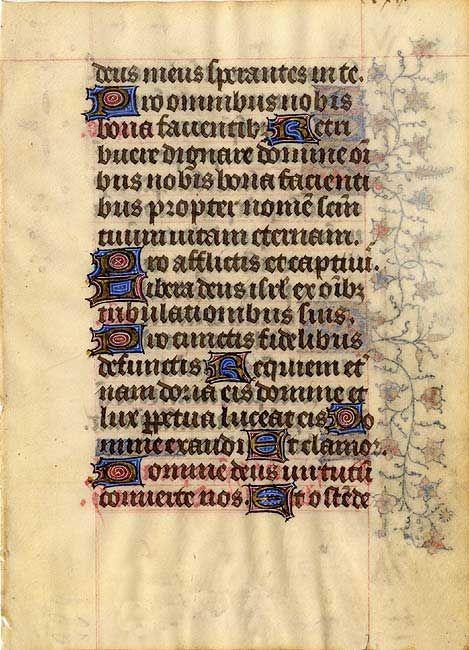 deus meus sperantes in te.
Pro omnibus nobis
bona facientib; Retri
buere dignare domine oi
bus nobis bona facienti
bus propter nomē scm
tuum vitam eternam.
Pro afflictis et captivi.
Libera deus isrl ex oībz
tribulationibus suis.
Pro cunctis fidelibus
defunctis Requiem et
nam dona eis domine et
lux ppetua luceat eis Do
mine exaudi Et clamor.
Domine deus virtutū
converte nos. Et ostēde